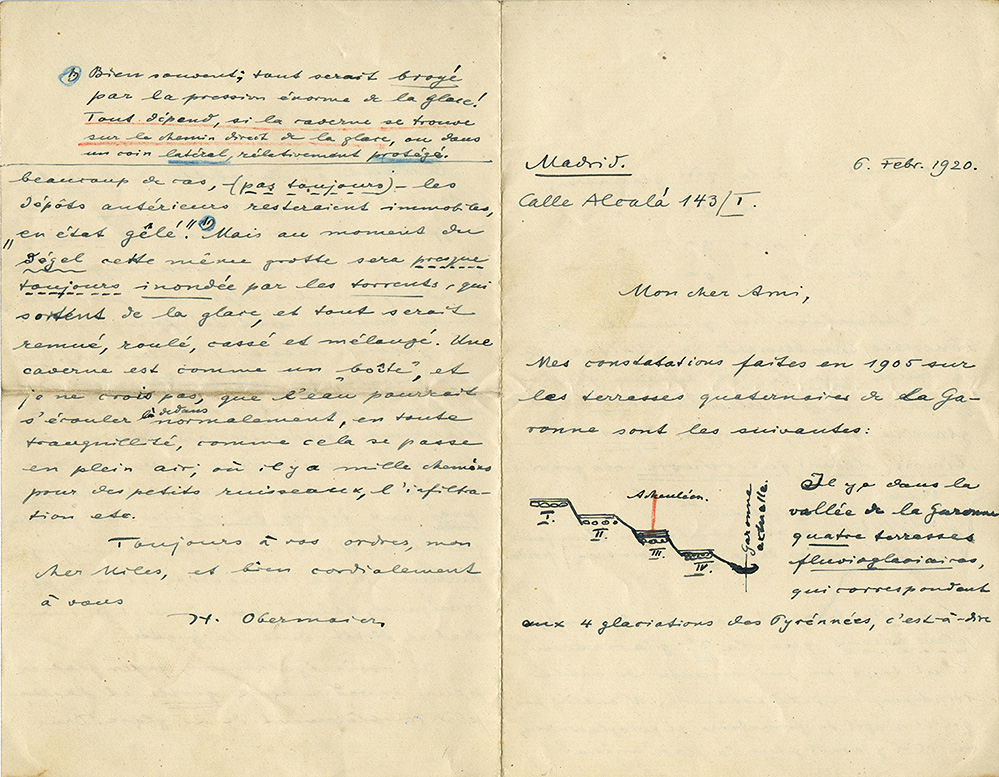 1) Bien souvent; tout serait broyé
par la pression énorme de la glace!
Tout dépend, si la caverne se trouve
sur le chemin direct de la glace, ou dans
un coin latéral, rélativement protégé.
beaucoup de cas, (pas toujours) – les
dépôts antérieurs resteraient immobiles,
„en état gêlé!" 1) Mais au moment du
dégel cette même grotte sera presque
toujours inondée par les torrents, qui
sortent de la glace, et tout serait
remué, roulé, cassé et mélangé. Une
caverne est comme un „boîte", et
je ne crois pas, que l'eau pourrait
s'écouler là dedans normalement, en toute
tranquillité, comme cela se passe
en plein air, où il y a mille chemins
pour des petits ruisseaux, l'infiltra-
tion etc.
Toujours à vos ordres, mon
cher Miles, et bien cordialement
à vous
H. Obermaier
Madrid. 6. Febr. 1920.
Calle Alcalá 143/I.
Mon cher Ami,
Mes constatations faites en 1905 sur
les terrasses quaternaires de la Ga-
ronne sont les suivantes:
Acheuléen.
I.
II.
III.
IV.
Garonne
actuelle.
Il y a dans la
vallée de la Garonne
quatre terrasses
fluvioglaciaires,
qui correspondent
aux 4 glaciations des Pyrénnées, c'est-à-dire